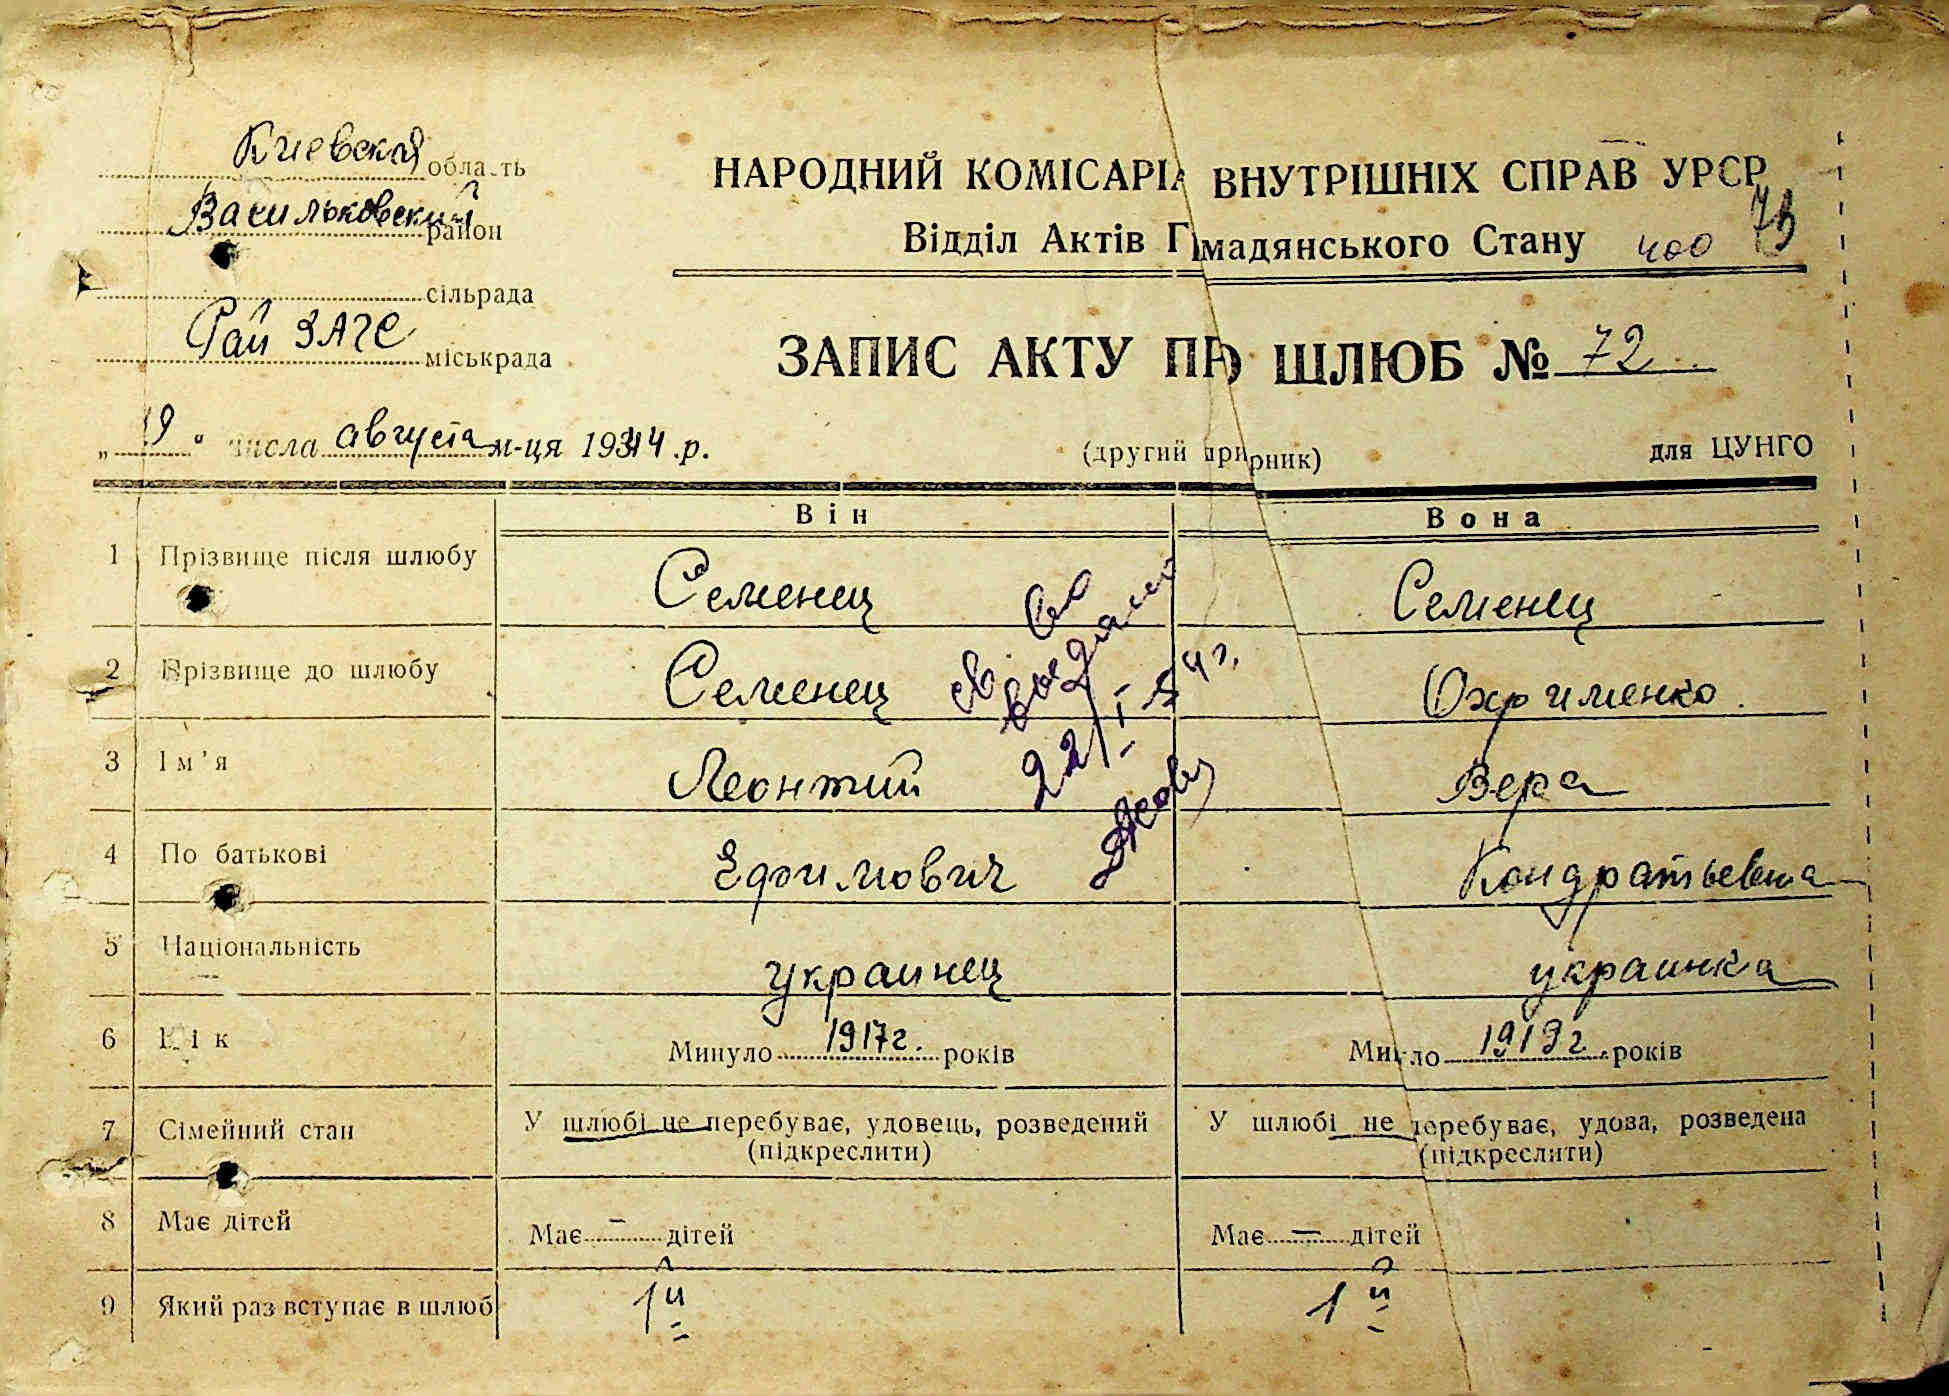 Киевская область
Васильковский район
сільрада
Рай ЗАГС міськрада
НАРОДНИЙ КОМІСАРІА ВНУТРІШНІХ СПРАВ УРСР
Відділ Актів Громадянського Стану 400 73
ЗАПИС АКТУ ПРО ШЛЮБ № 72
„19“ числа августа м-ця 1944 .р.
(другий примірник)
для ЦУНГО
Він Вона
1 Прізвище після шлюбу Семенец Семенец
2 Прізвище до шлюбу Семенец Охрименко.
3 Ім'я Леонтий Вера
4 По батькові Ефимович Кондратьевна
5 Національність украинец украинка
6 Вік Минуло 1917г. років Минуло 1919г. років
7 Сімейний стан У шлюбі не перебуває, удовець, розведений У шлюбі не перебуває, удова, розведена
(підкреслити) (підкреслити)
8 Має дітей Має – дітей Має – дітей
9 Який раз вступає в шлюб 1й 1й
св во
выдано
22/I-54г.